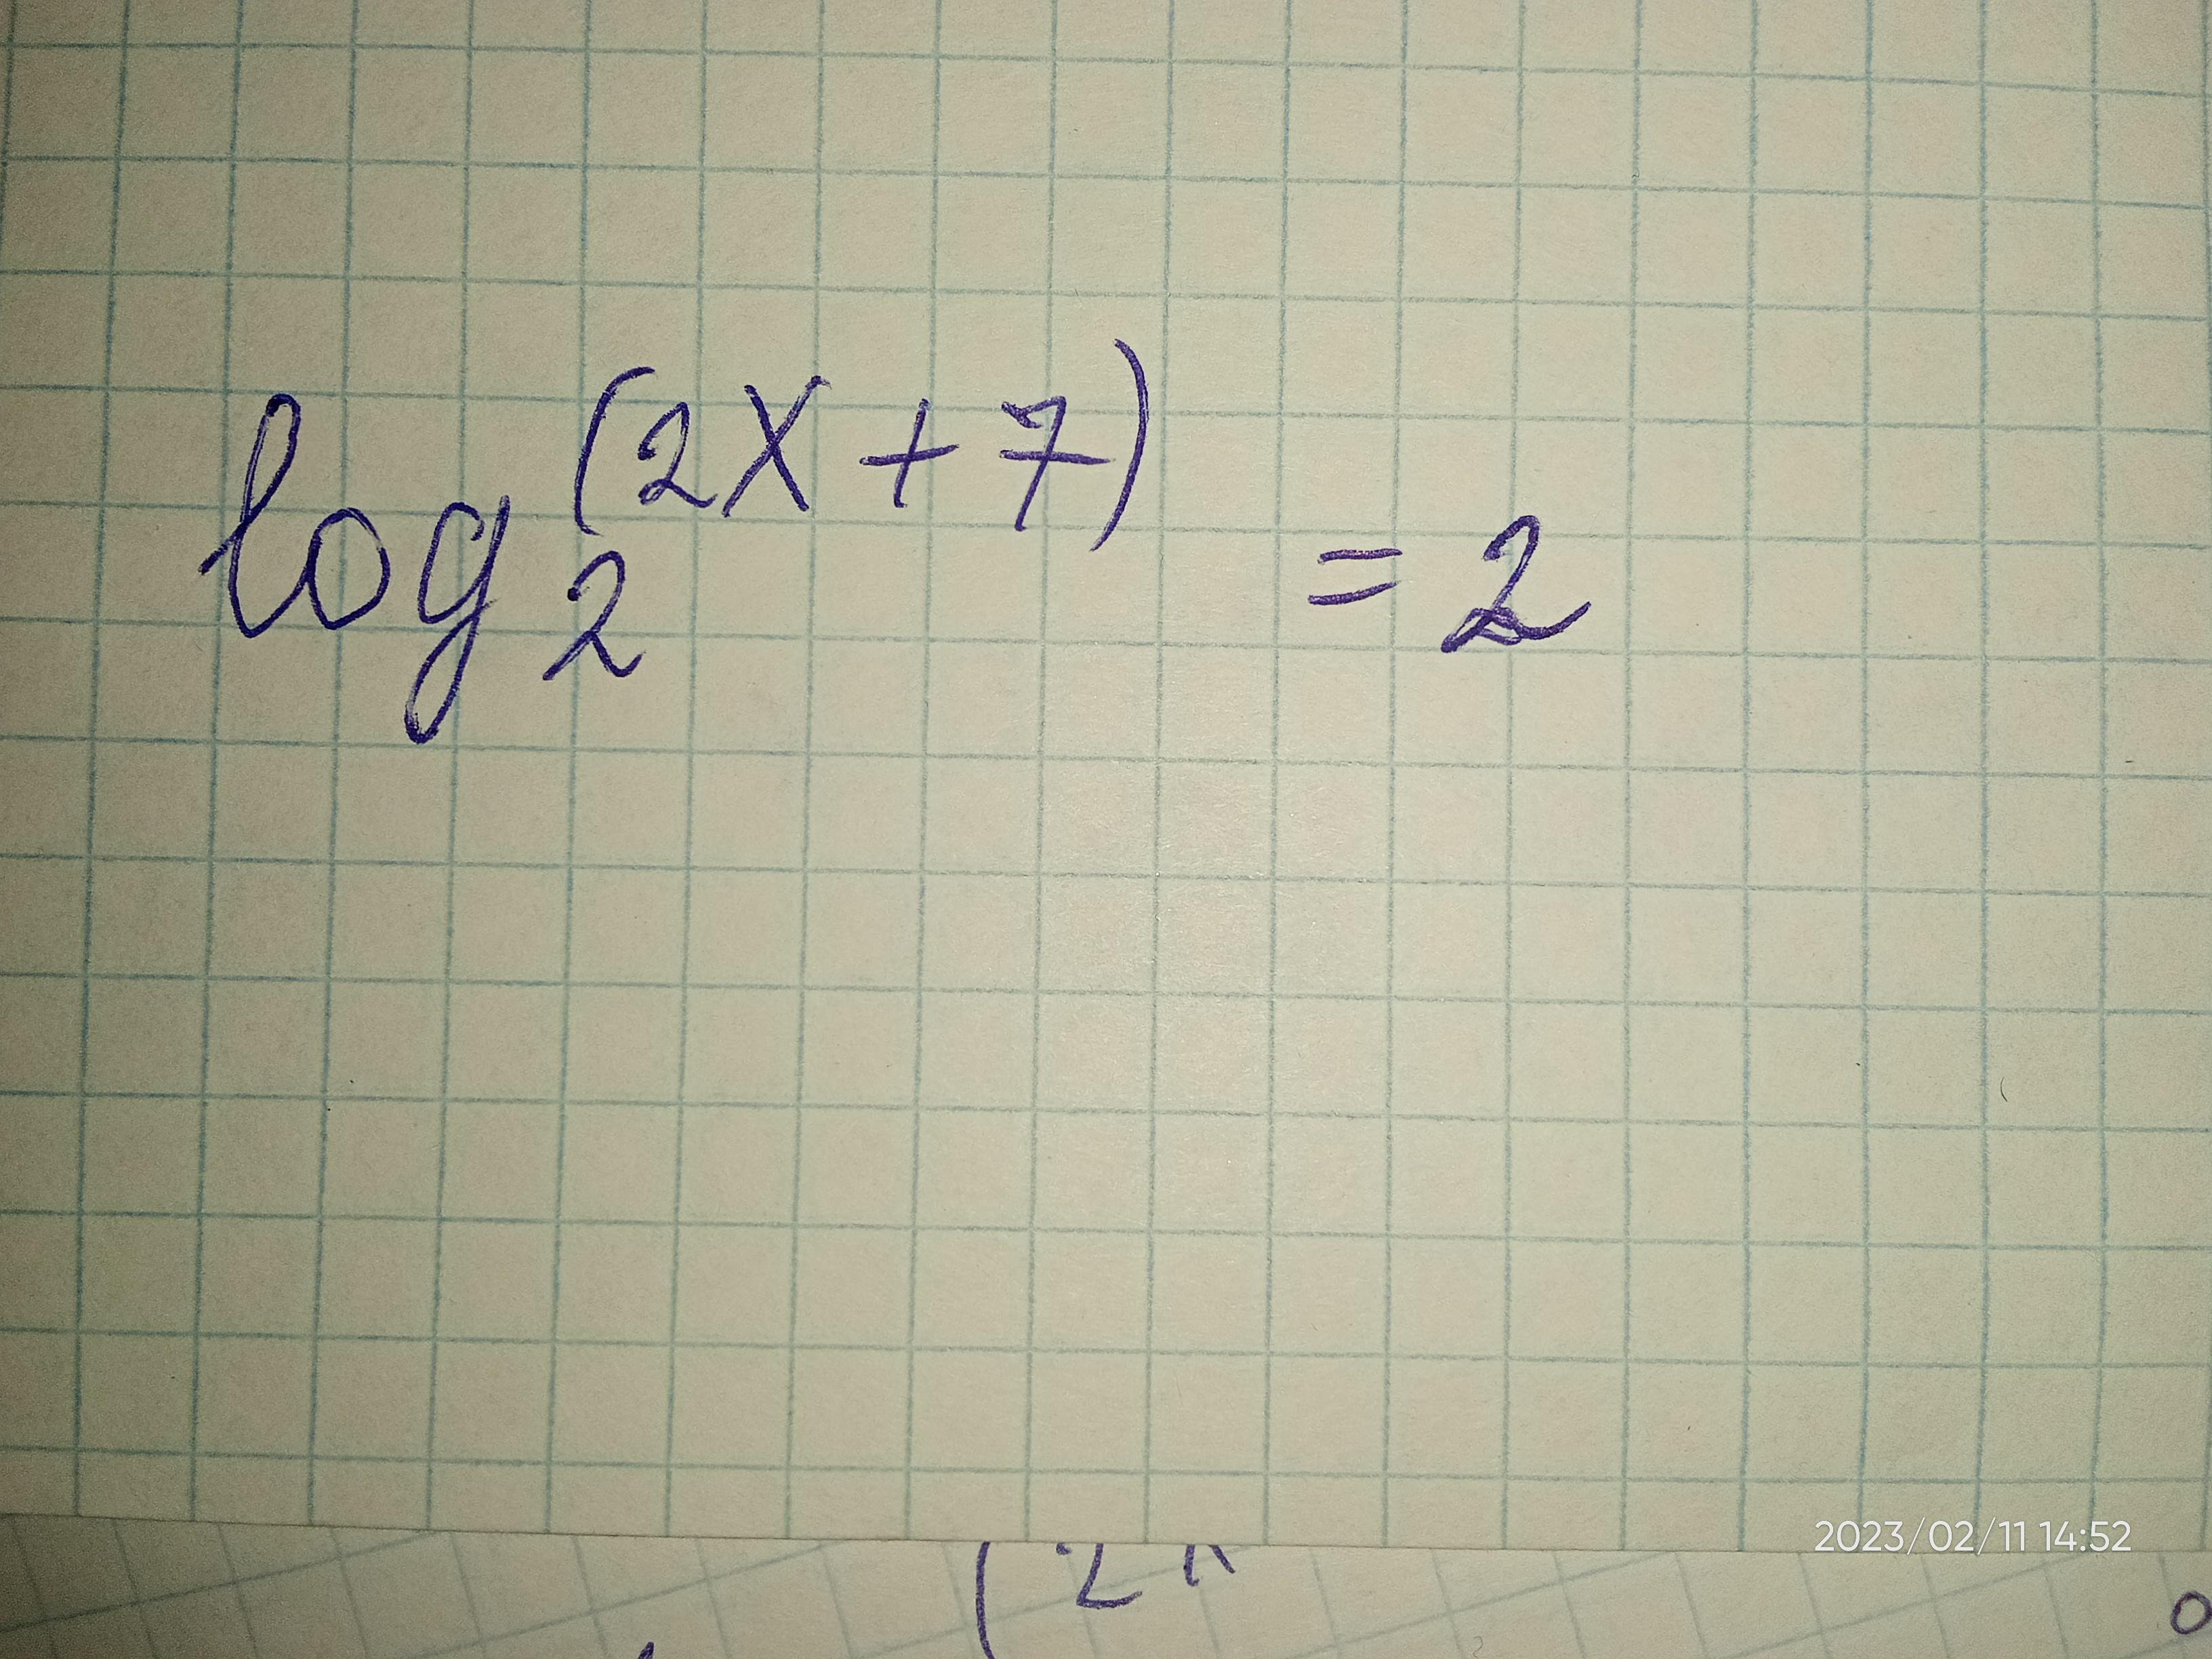 log₂^(2x+7) = 2
2023/02/11 14:52
(2